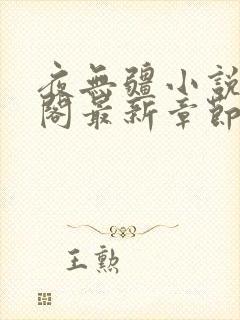 夜無疆小說
閣最新章節
王勲